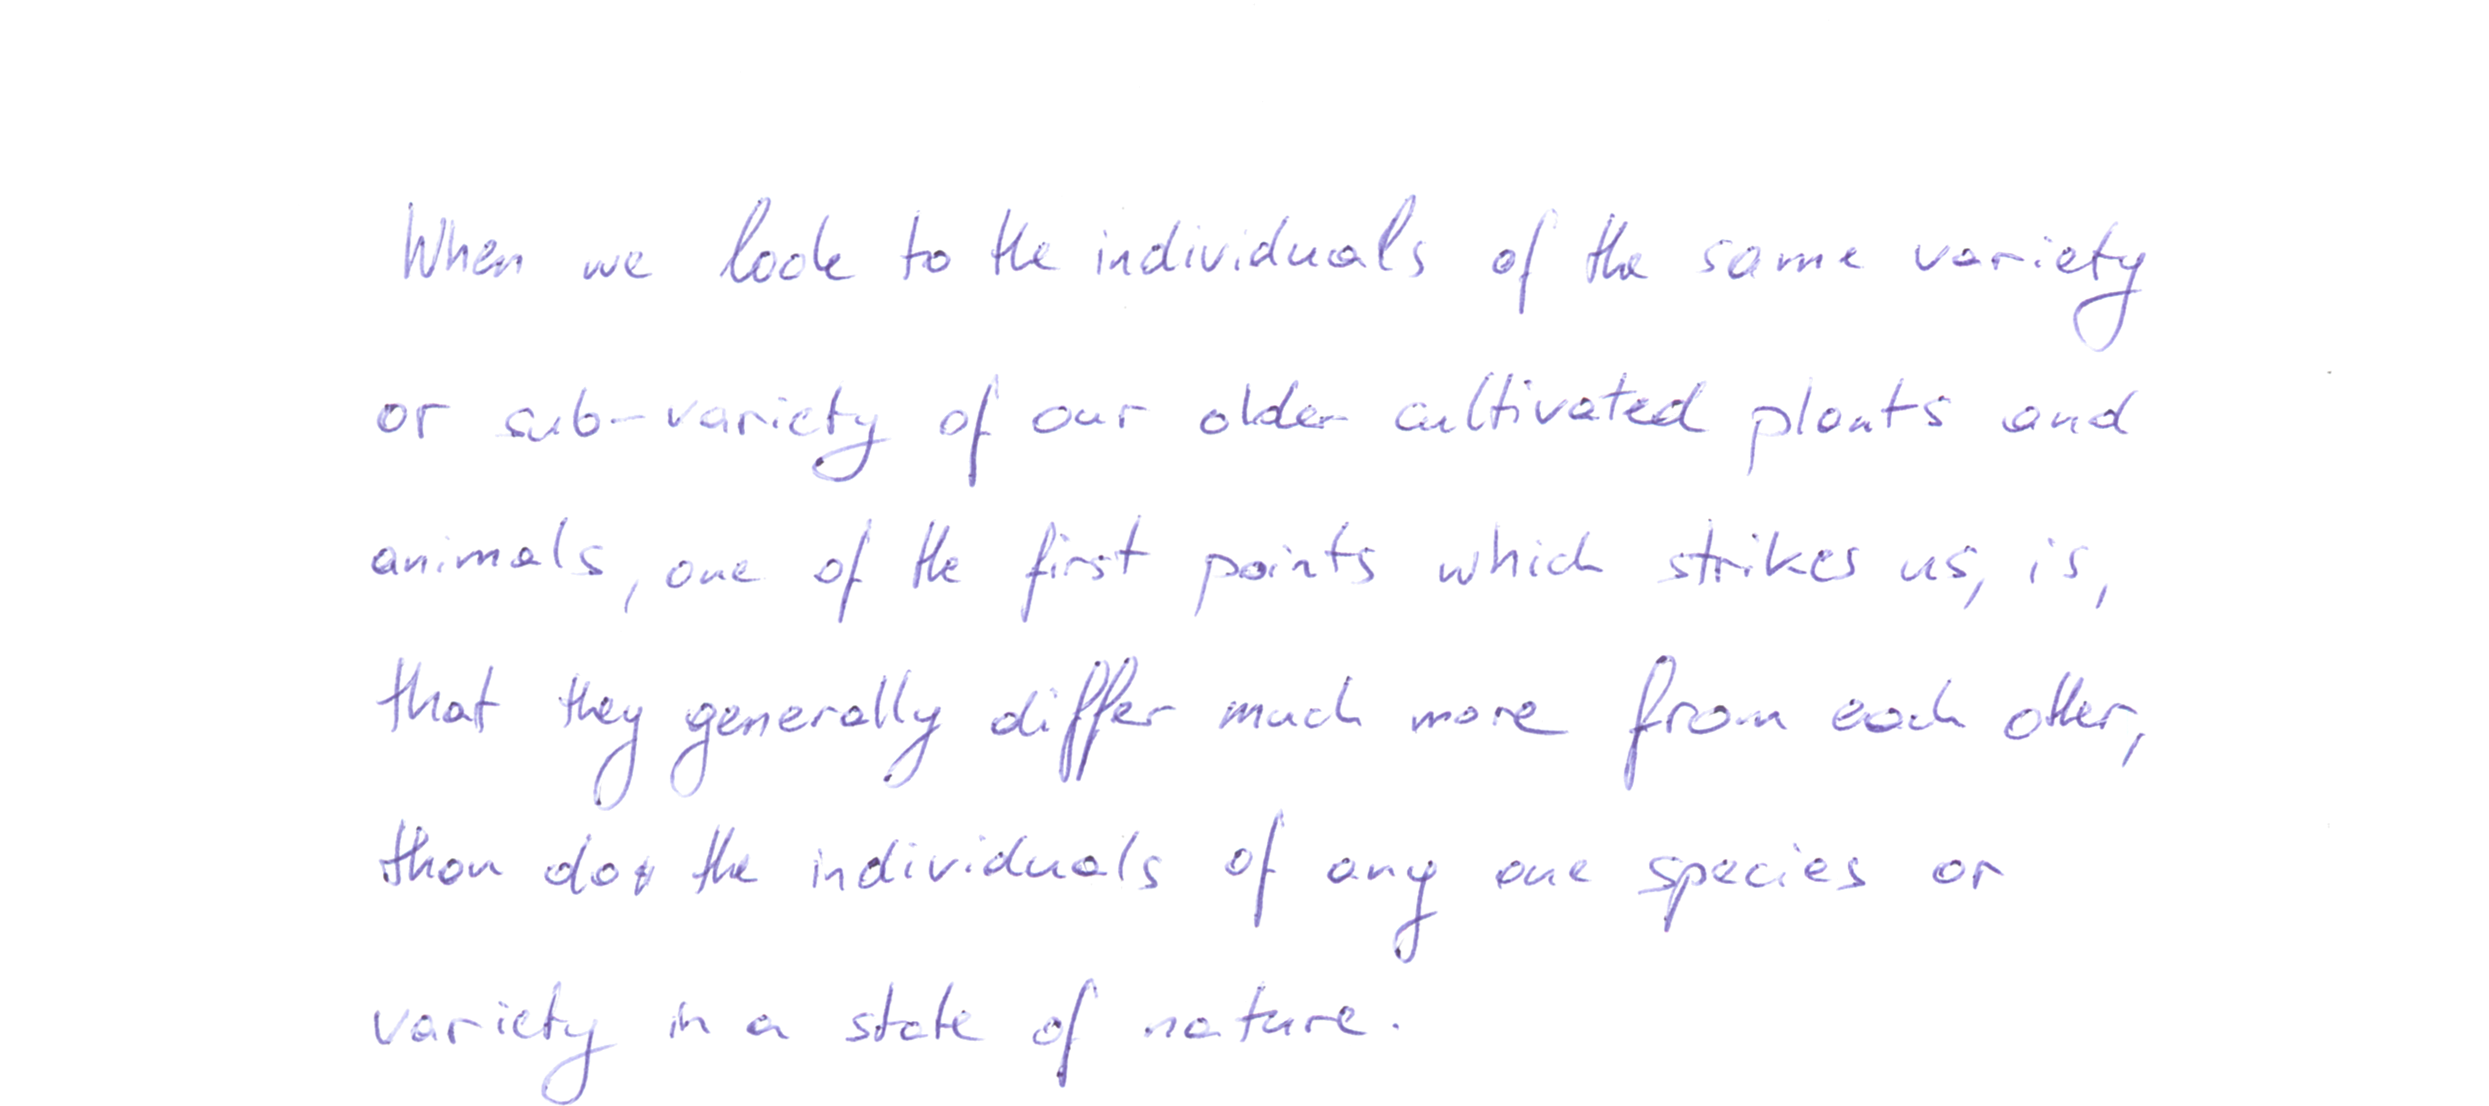 When we look to the individuals of the same variety
or sub-variety of our older cultivated plants and
animals, one of the first points which strikes us, is,
that they generally differ much more from each other,
than do the individuals of any one species or
variety in a state of nature.